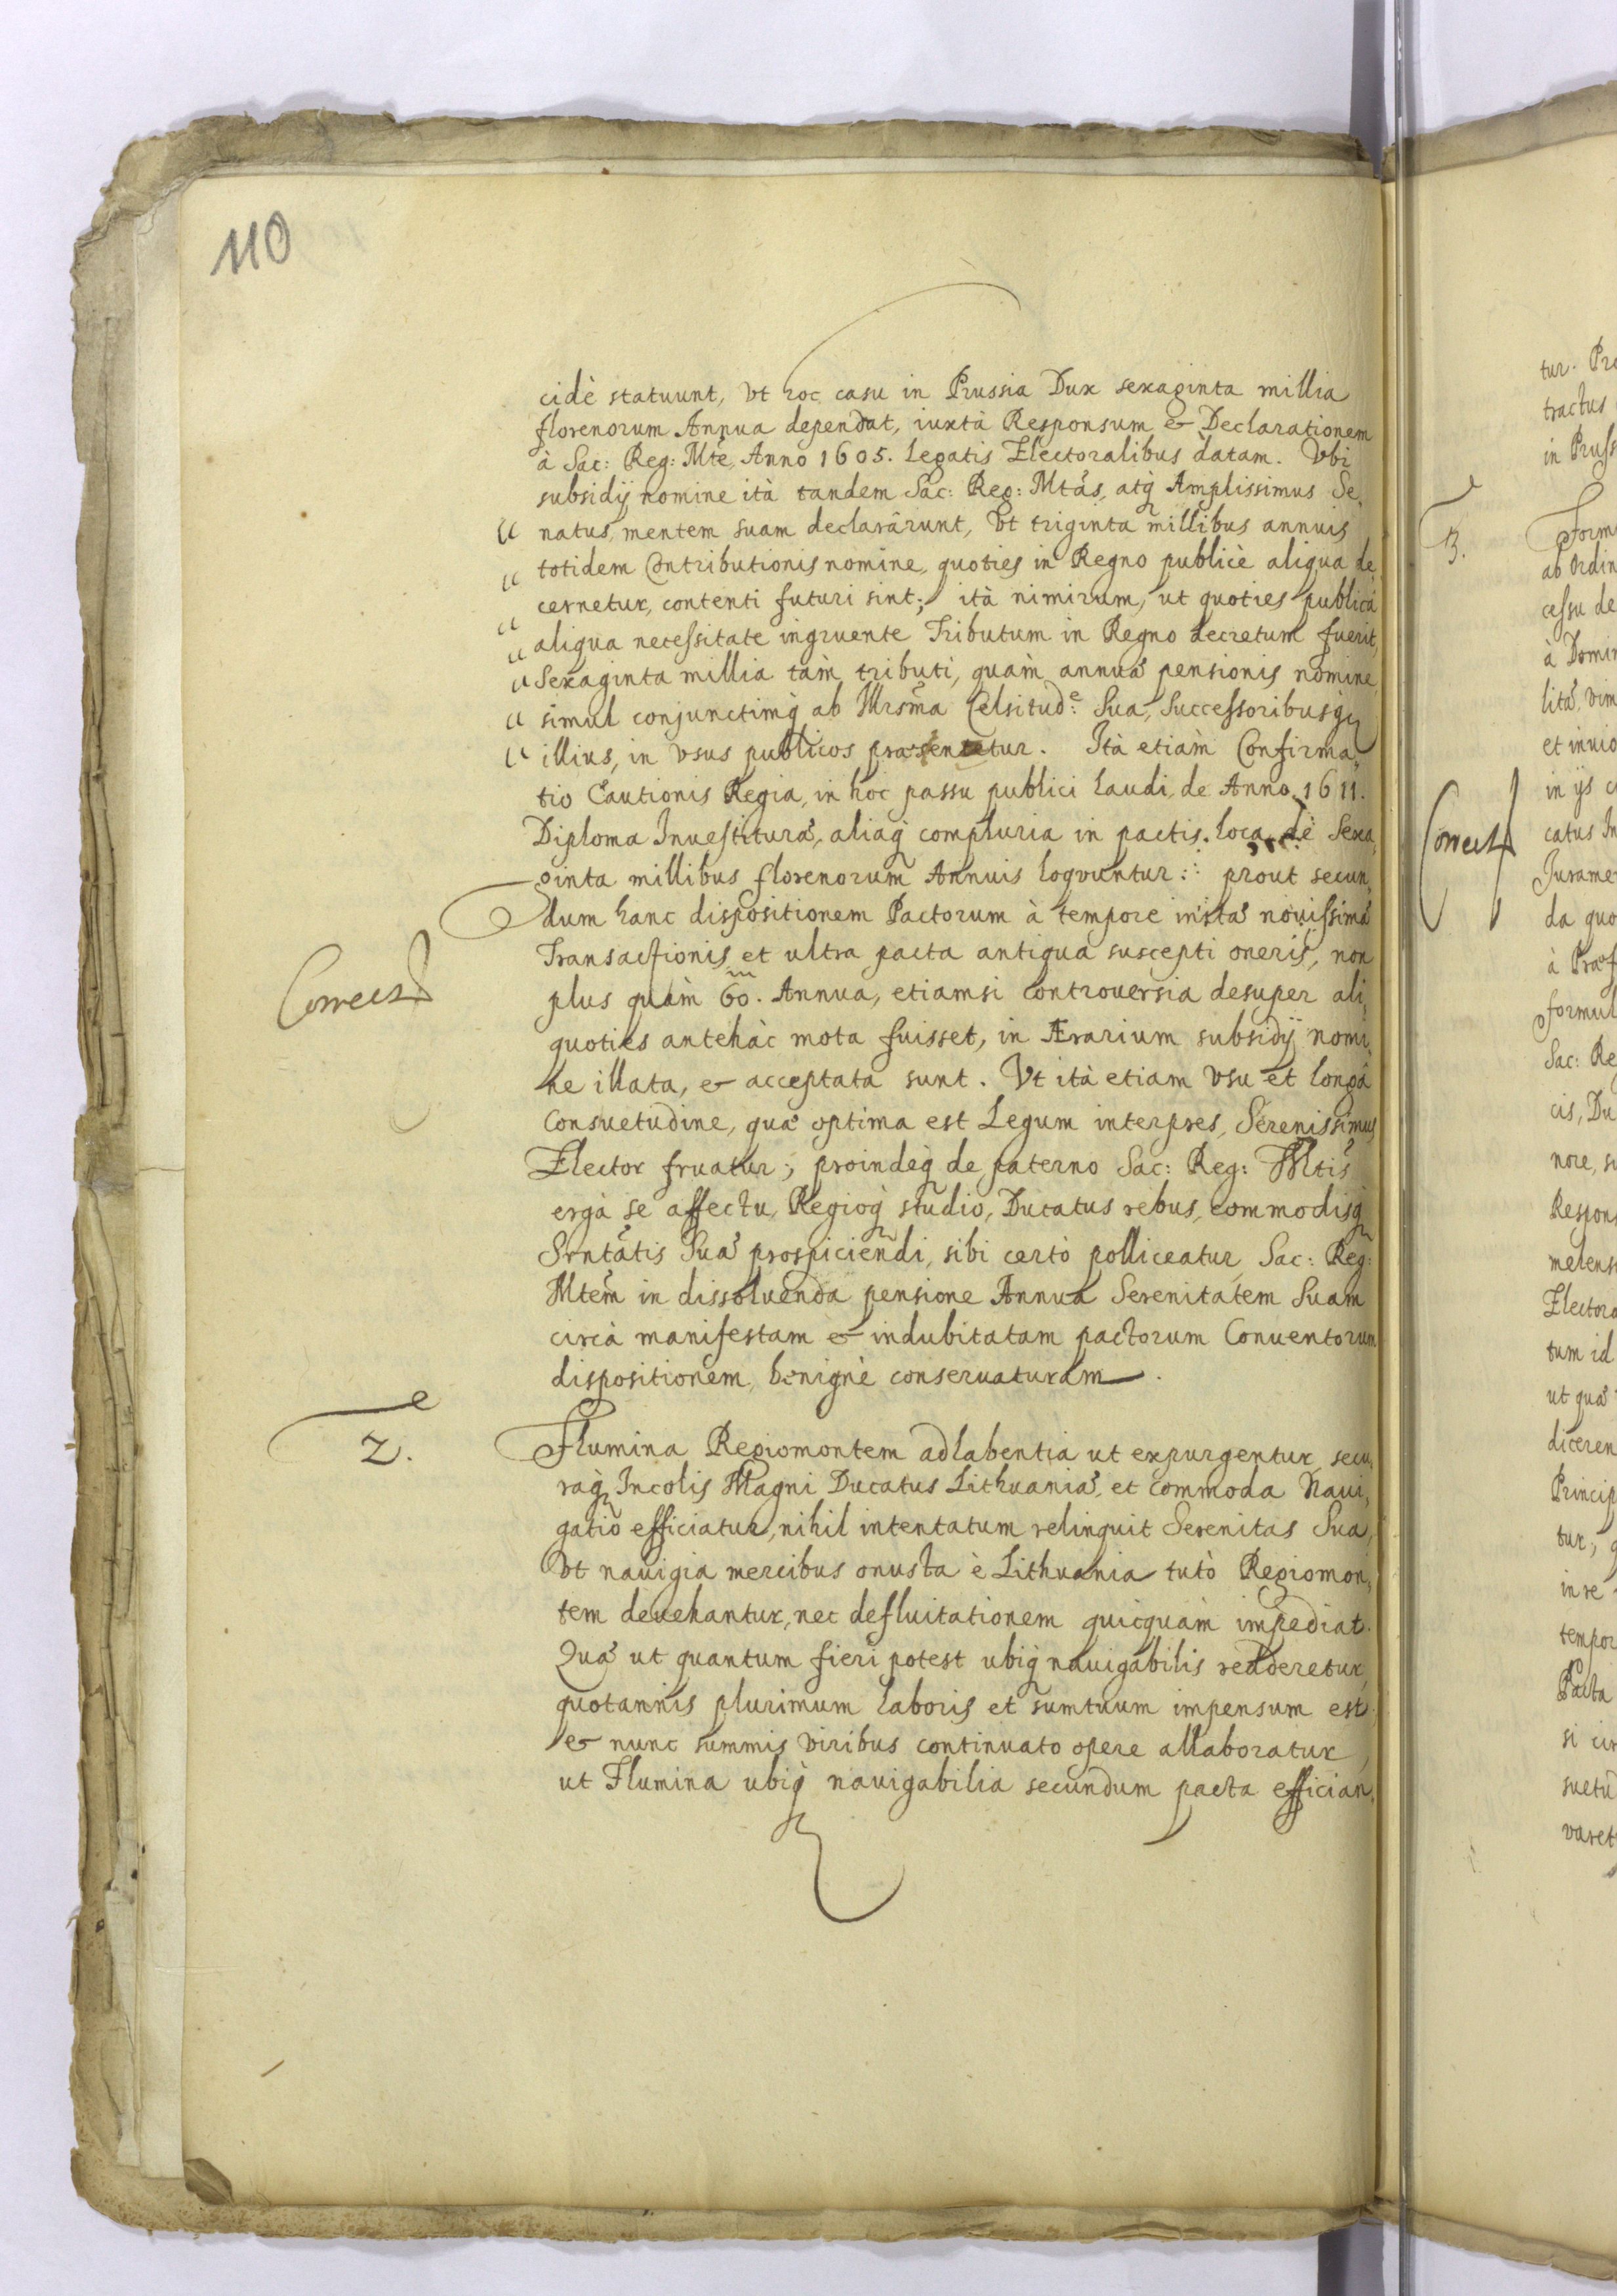 110
cidè statuunt, Vt hoc casu in Prussia Dux sexaginta millia
florenorum Annua dependat, iuxtà Responsum & Declarationem
à Sac: Reg: Mte, Anno 1605. Legatis Electoralibus datam. Vbi
subsidij nomine ità tandem Sac: Reg: Mtas, atq Amplissimus Se,
natus, mentem suam declarârunt, Vt triginta millibus annuis
totidem Contributionis nomine, quoties in Regno publicè aliqua de,
cernetur, contenti futuri sint; ità nimirum, ut quoties publicâ
aliqua necessitate ingruente Tributum in Regno decretum fuerit,
Sexaginta millia tàm tributi, quàm annuæ pensionis nomine,
simul conjunctimq ab Illrsma Celsitude: Sua, Successoribusq
illius, in Vsus publicos præsentetur. Ità etiàm Confirma,
tio Cautionis Regia, in hoc passu publici Laudi, de Anno 1611.
Diploma Inuestituræ, aliaq compluria in pactis loca, dè Sexa,
ginta millibus florenorum Annuis loqvuntur: prout secun,
dum hanc dispositionem Pactorum à tempore initæ nouissimæ
Transactionis, et ultra pacta antiqua suscepti oneris, non
Correct
plus quàm 60m. Annua, etiamsi controuersia desuper ali,
quoties antehàc mota fuisset, in Ærarium subsidij nomi,
ne illata, & acceptata sunt. Vt ità etiam Vsu et longâ
Consuetudine, quæ optima est Legum interpres, Serenissimus
Elector fruatur; proindeq de paterno Sac: Reg: Mtis
ergà se affectu, Regioq studio, Ducatus rebus, commodisq
Srntatis Suæ prospiciendi, sibi certò polliceatur, Sac: Reg:
Mtem in dissoluenda pensione Annua Serenitatem Suam
circà manifestam & indubitatam pactorum Conuentorum
dispositionem, benignè conseruaturam.
2.
Flumina Regiomontem adlabentia ut expurgentur, secu,
raq Incolis Magni Ducatus Lithuaniæ, et Commoda Naui,
gatio efficiatur, nihil intentatum relinquit Serenitas Sua,
Vt nauigia mercibus onusta è Lithuania tutò Regiomon,
tem deuehantur, nec defluitationem quicquàm impediat.
Quæ ut quantum fieri potest ubiq nauigabilis redderetur,
quotannis plurimum laboris et sumtuum impensum est,
& nunc summis Viribus continuato opere allaboratur,
ut Flumina ubiq nauigabilia secundum pacta effician,
tur. Pro
tractus
in Pruss
3.
Form
ab Ordin
cessu de
à Domin
litæ, vim
et inuio
in ijs
Correct
catus In
Jurame
da quo
à Præf
formul
Sac: Re
cis, Du
nore, su
Respons
melens
Electora
tum id
ut quæ
diceren
Princip
tur,
in re
tempor
Pacta
si cir
suetud
varet